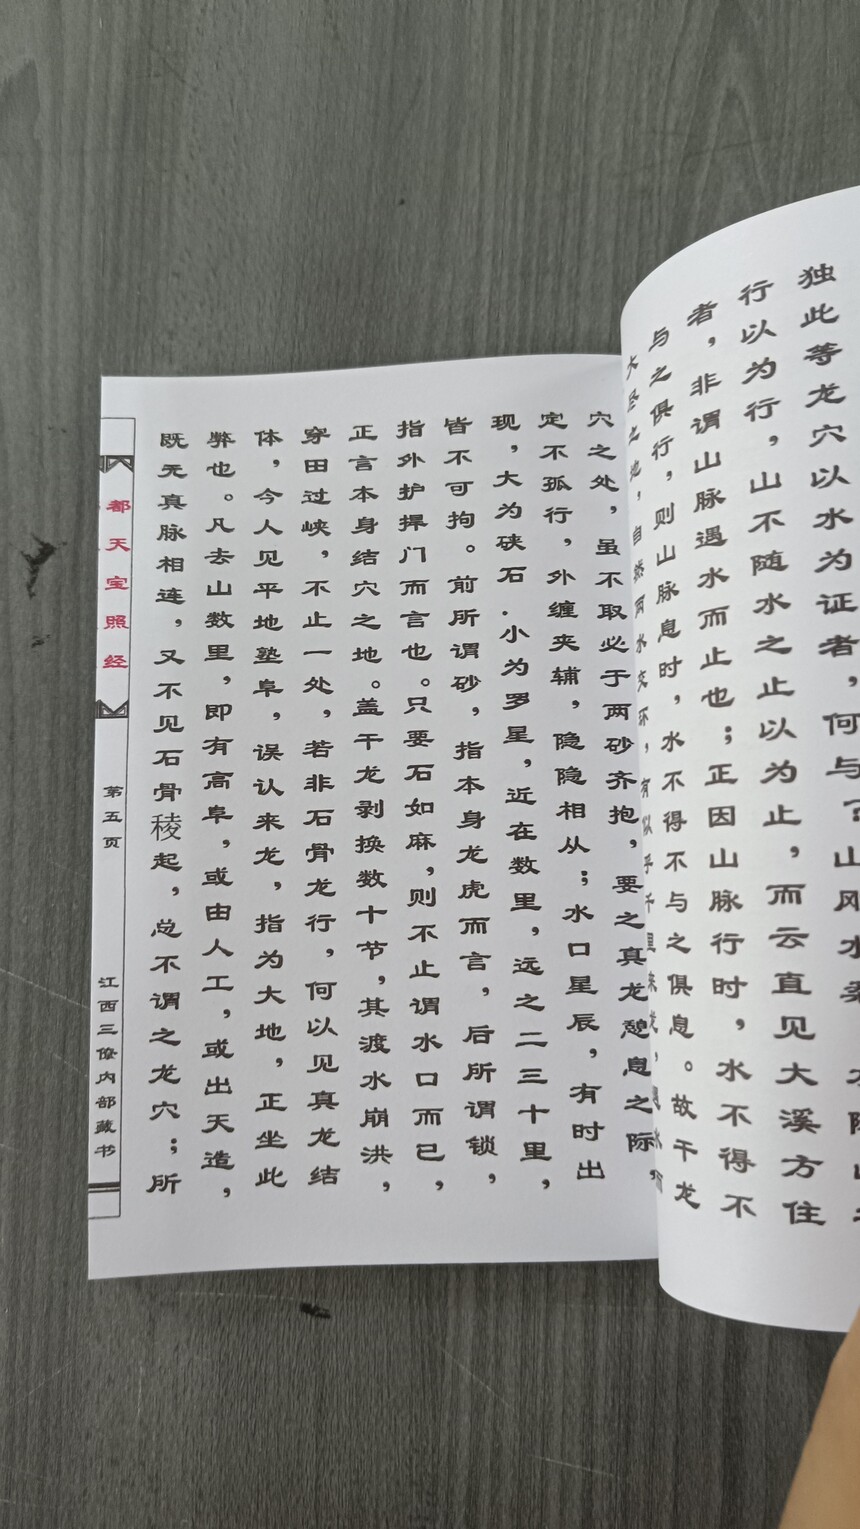 独此等龙穴以水为证者，何与？山
行以为行，山不随水之止以为止，而云直见大溪方住
者，非谓山脉遇水而止也；正因山脉行时，水不得不
与之俱行，则山脉息时，水不得不与之俱息。故干龙
地，自然两水交环，有似乎千里来
穴之处，虽不取必于两砂齐抱，要之真龙憩息之际，
定不孤行，外缠夹辅，隐隐相从；水口星辰，有时出
现，大为硖石．小为罗星，近在数里，远之二三十里，
皆不可拘。前所谓砂，指本身龙虎而言，后所谓锁，
指外护捍门而言也。只要石如麻，则不止谓水口而已，
正言本身结穴之地。盖干龙剥换数十节，其渡水崩洪，
穿田过峡，不止一处，若非石骨龙行，何以见真龙结
体，今人见平地墊阜，误认来龙，指为大地，正坐此
弊也。凡去山数里，即有高阜，或由人工，或出天造，
既无真脉相连，又不见石骨稜起，总不谓之龙穴；所
都天宝照经
第五页
江西三僚内部藏书